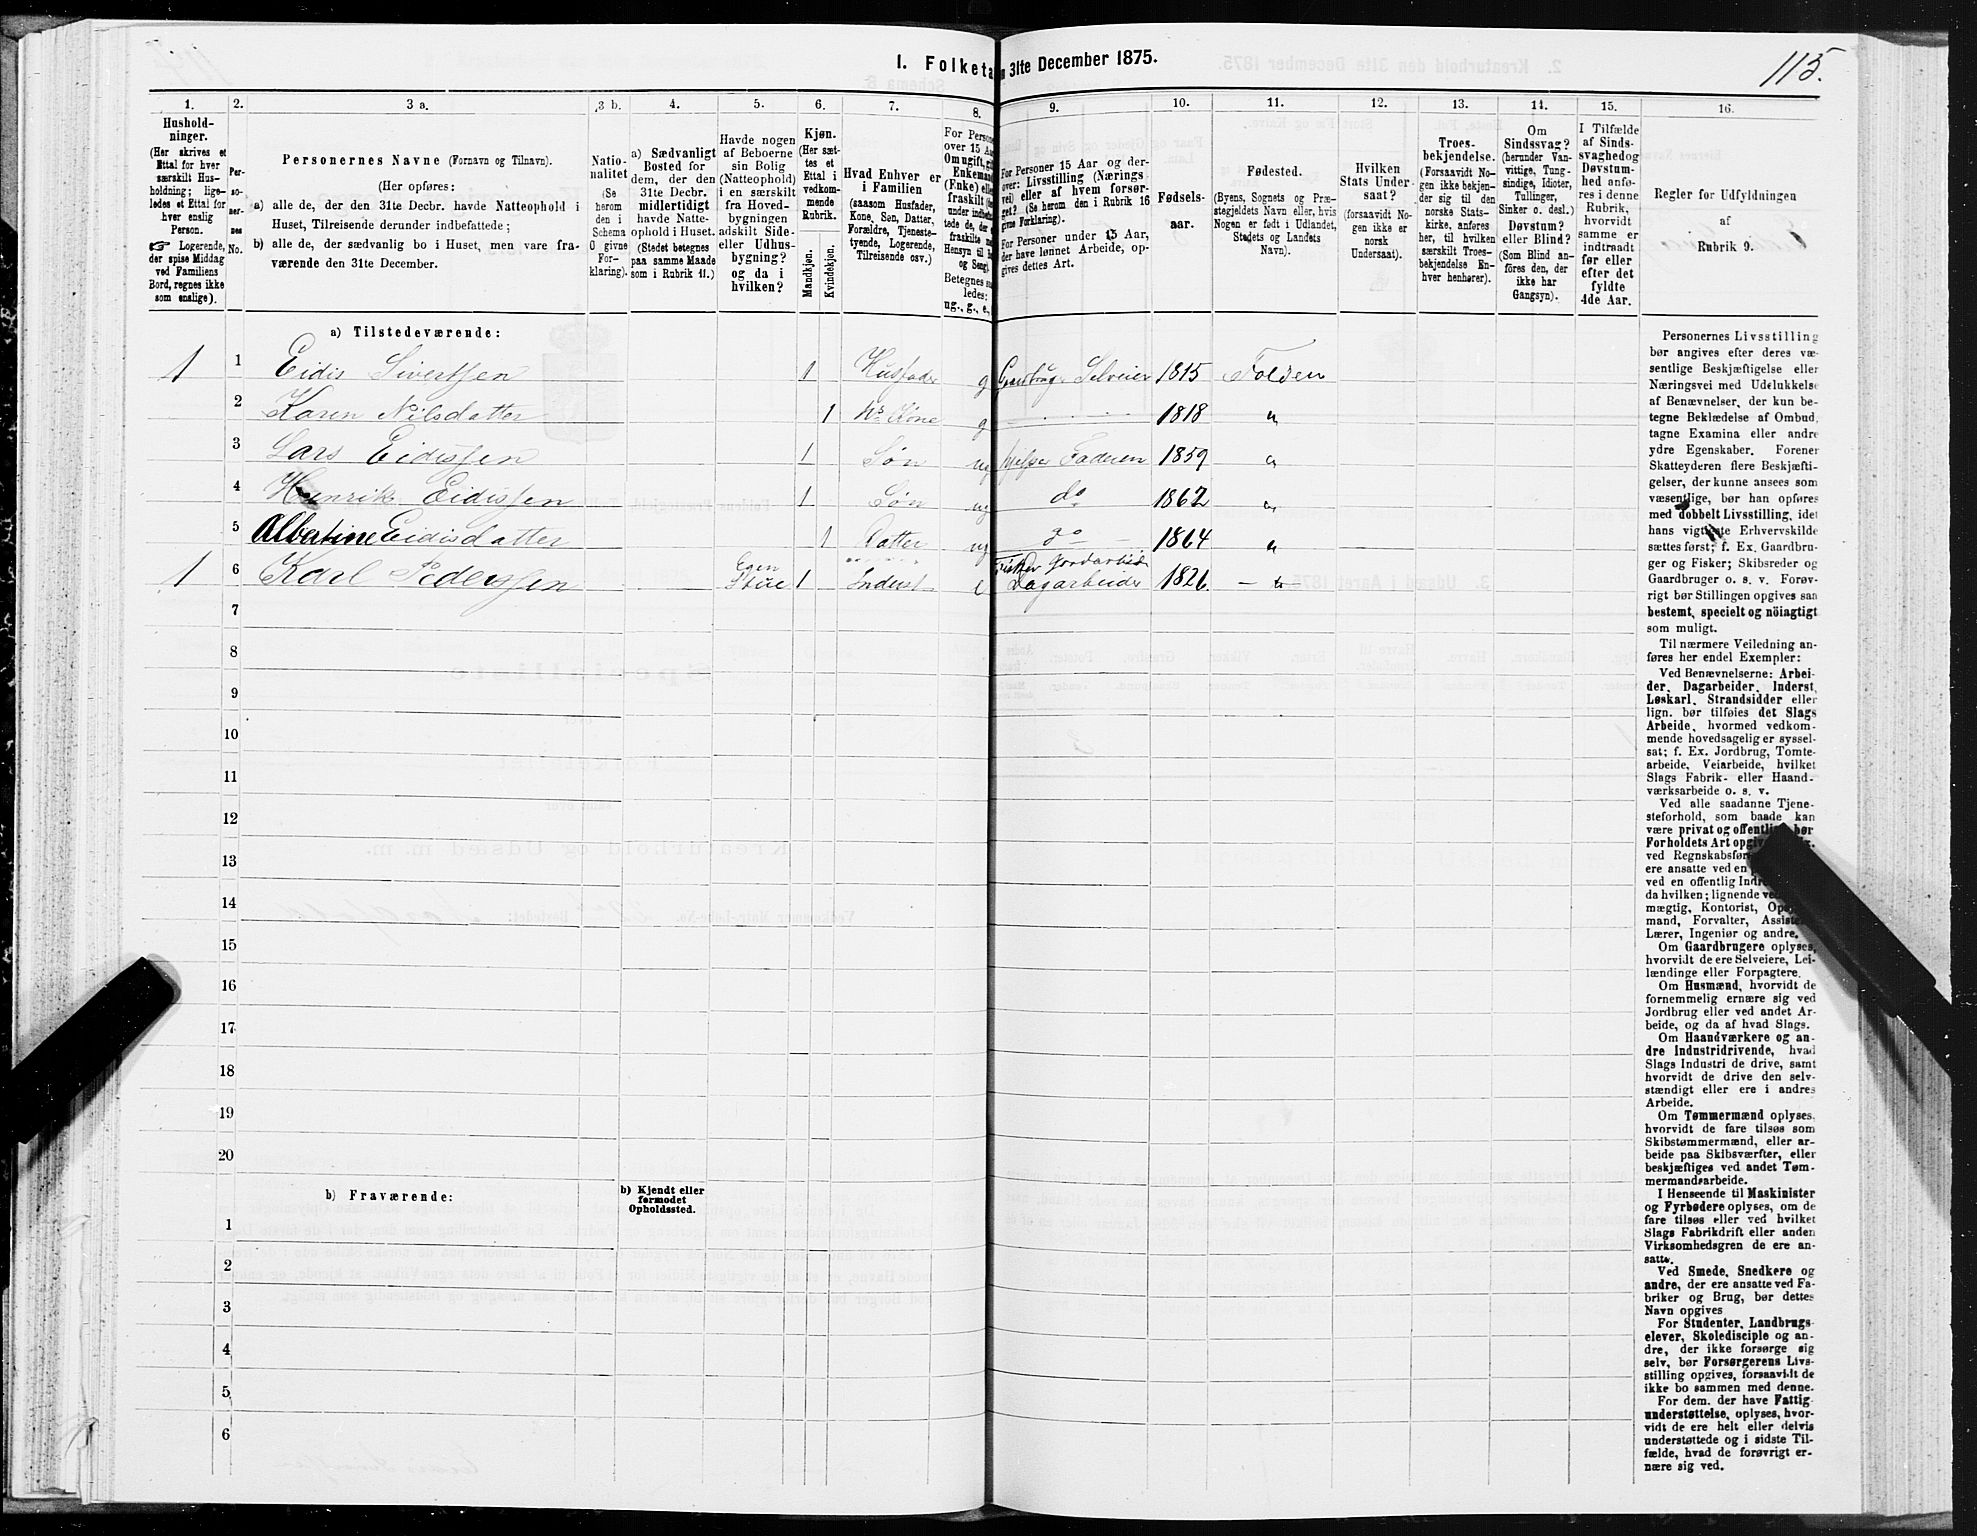 115.
I. Folketa
n 31te December 1875.
1. 2. 3 a. 3 b. 4. 5. 6. 7. 8. 9. 10. 11. 12. 13. 14. 15. 16.
Hushold-
ninger.
(Her skrives et
Ettal for hver
særskilt Hus-
holdning; lige-
ledes et Ettal for
hver enslig
Person.
☞ Logerende,
der spise Middag
ved Familiens
Bord, regnes ikke
som enslige).
Per-
so-
ner-
nes
No.
Personernes Navne (Fornavn og Tilnavn).
(Her opføres:
a) alle de, der den 31te Decbr. havde Natteophold i
Huset, Tilreisende derunder indbefattede;
b) alle de, der sædvanlig bo i Huset, men vare fra-
værende den 31te December.
Natio-
nalitet
(Se
herom
den i
Schema
O givne
For-
klaring).
a) Sædvanligt
Bosted for
dem, der den
31te Decbr.
midlertidigt
havde Natte-
ophold i Huset.
(Stedet betegnes
paa samme Maade
som i Rubrik 11.)
Havde nogen
af Beboerne
sin Bolig
(Natteophold)
i en særskilt
fra Hoved-
bygningen
adskilt Side-
eller Udhus-
bygning?
og da i
hvilken?
Kjøn.
(Her sæt-
tes et
Ettal i
vedkom-
mende
Rubrik.
Mandkjøn.
Kvindekjøn.
Hvad Enhver er
i Familien
(saasom Husfader,
Kone, Søn, Datter,
Forældre, Tjeneste-
tyende, Logerende,
Tilreisende osv.)
For Person
over 15 Aa
Om ugift, gi
Enkeman
(Enke) elle
fraskilt
under indbe
tede de, der
fraskilte
Hensyn til
og Seng)
Betegnes
ledes:
ug-, g., e.,
For Personer 15 Aar og der-
over: Livsstilling (Nærings-
vei) eller af hvem forsør-
get? (Se herom den i Rubrik 16
givne Forklaring).
For Personer under 15 Aar,
der have lønnet Arbeide, op-
gives dettes Art.
Fødsels-
aar.
Fødested.
(Byens, Sognets og Præ-
stegjeldets Navn eller, hvis
Nogen er født i Udlandet,
Stedets og Landets
Navn).
Hvilken
Stats Under-
saat?
(forsaavidt No-
gen ikke er
norsk
Undersaat).
Troes-
bekjendelse.
(Forsaavidt No-
gen ikke bekjen-
der sig til den
norske Stats-
kirke, anføres
her, til hvilken
særskilt Troes-
bekjendelse En-
hver henhører).
Om
Sindssvag?
(herunder Van-
vittige, Tung-
sindige, Idioter,
Tullinger,
Sinker o. desl.)
Døvstum?
eller Blind?
(Som Blind an-
føres den, der
ikke har
Gangsyn).
I Tilfælde
af Sinds-
svaghed og
Døvstum-
hed anfø-
res i denne
Rubrik,
hvorvidt
samme er
indtraadt
før eller
efter det
fyldte
4de Aar.
Regler for Udfyldningen
af
Rubrik 9.
a) Tilstedeværende:
1 1 Eidis Sivertsen 1 Husfader g Gaardbruger Selveier 1815 Folden
2 Karen Nilsdatter 1 Hs Kone g 1818 "
3 Lars Eidissen 1 Søn ug hjelper Faderen 1859 "
4 Henrik Eidissen 1 Søn ug do 1862 "
5 Albertine Eidisdatter 1 Datter ug do 1864 "
1 6 Karl Pedersen Egen Stue 1 Inderst e Fisker Jordarbeid Dagarbeider 1826 — "
7
8
9
10
11
12
13
14
15
16
17
18
19
20
b) Fraværende:
b) Kjendt eller
formodet
Opholdssted.
1
2
3
4
5
6
Personernes Livsstilling
bør angives efter deres væ-
sentlige Beskjæftigelse eller
Næringsvei med Udelukkelse
af Benævnelser, der kun be-
tegne Beklædelse af Ombud,
tagne Examina eller andre
ydre Egenskaber. Forener
Skatteyderen flere Beskjæfti-
gelser, der kunne ansees som
væsentlige, bør han opføres
med dobbelt Livsstilling, idet
hans vigtigste Erhvervskilde
sættes først; f. Ex. Gaardbru-
ger og Fisker; Skibsreder og
Gaardbruger o. s. v. Forøv-
rigt bør Stillingen opgives saa
bestemt, specielt og nöiagtigt
som muligt.
Til nærmere Veiledning an-
føres her endel Exempler:
Ved Benævnelserne: Arbei-
der, Dagarbeider, Inderst,
Løskarl, Strandsidder eller
lign. bør tilføies det Slags
Arbeide, hvormed vedkom-
mende hovedsagelig er syssel-
sat; f. Ex. Jordbrug, Tomte-
arbeide, Veiarbeide, hvilket
Slags Fabrik- eller Haand-
værksarbeide o. s. v.
Ved alle saadanne Tjene-
steforhold, som baade kan
være privat og offentlig, bør
Forholdets Art opgiv
ved Regnskabsfør
ere ansatte ved en
ved en offentlig Ind
da hvilken; lignende ve
mægtig, Kontorist, Op
mand, Forvalter, Assist
Lærer, Ingeniør og andre.
Om Gaardbrugere oplyses,
hvorvidt de ere Selveiere, Lei-
lændinge eller Forpagtere.
Om Husmænd, hvorvidt de
fornemmelig ernære sig ved
Jordbrug eller ved andet Ar-
beide, og da af hvad Slags.
Om Haandværkere og an-
dre Industridrivende, hvad
Slags Industri de drive, samt
hvorvidt de drive den selv-
stændigt eller ere i andres
Arbeide.
Om Tømmermænd oplyses,
hvorvidt de fare tilsøs som
Skibstømmermænd, eller ar-
beide paa Skibsværfter, eller
beskjæftiges ved andet Tøm-
mermandsarbeide.
I Henseende til Maskinister
og Fyrbødere oplyses, om de
fare tilsøs eller ved hvilket
Slags Fabrikdrift eller anden
Virksomhedsgren de ere an-
satte.
Ved Smede, Snedkere og
andre, der ere ansatte ved Fa-
briker og Brug, bør dettes
Navn opgives
For Studenter, Landbrugs-
elever, Skoledisciple og an-
dre, der ikke forsørge sig
selv, bør Forsørgerens Livs-
stilling opgives, forsaavidt de
ikke bo sammen med denne.
For dem, der have Fattig-
understøttelse, oplyses, hvor-
vidt de ere helt eller delvis
understøttede og i sidste Til-
fælde, hvad de forøvrigt er-
nære sig ved.